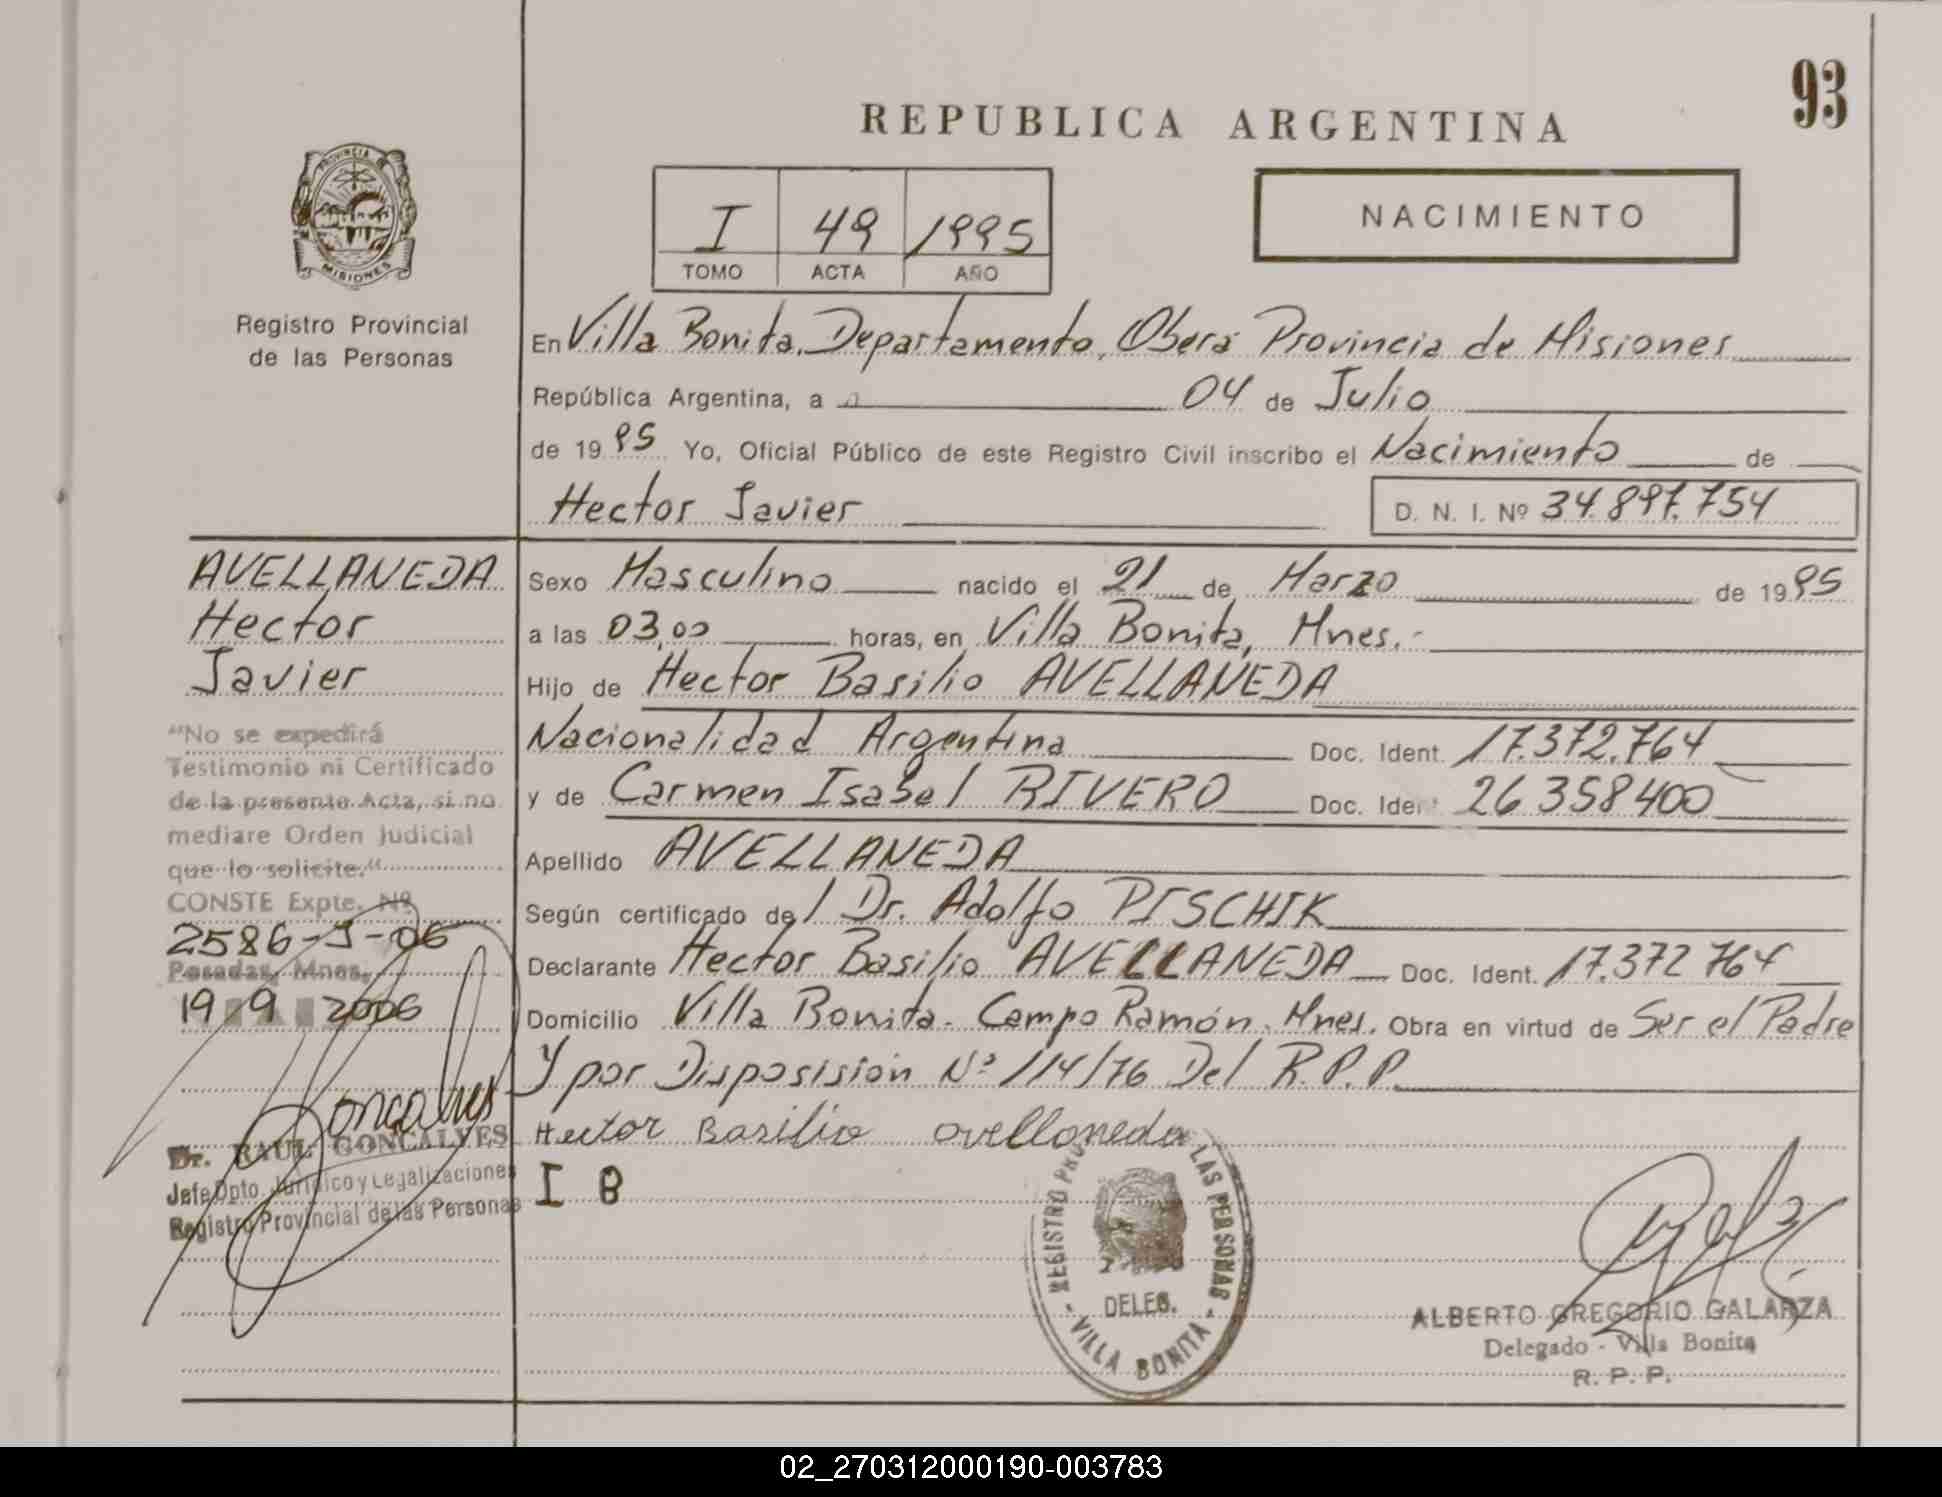 93
REPUBLICA ARGENTINA
PROVINCIA DE
MISIONES
Registro Provincial
de las Personas
I 49 1995
TOMO ACTA AÑO
NACIMIENTO
En Villa Bonita, Departamento, Oberá Provincia de Misiones
República Argentina, a 04 de Julio
de 1995 Yo, Oficial Público de este Registro Civil inscribo el Nacimiento de
Hector Javier D. N. I. Nº 34.897.754
AVELLANEDA
Hector
Javier
"No se expedirá
Testimonio ni Certificado
de la presente Acta, si no
mediare Orden Judicial
que lo solicite."
CONSTE Expte. Nº
2586-J-06
Posadas, Mnes,
19 9 2006
Goncalves
Dr. RAUL GONCALVES
Jefe Dpto. Jurídico y Legalizaciones
Registro Provincial de las Personas
Sexo Masculino nacido el 21 de Marzo de 1995
a las 03,00 horas, en Villa Bonita, Mnes.-
Hijo de Hector Basilio AVELLANEDA
Nacionalidad Argentina Doc. Ident. 17.372.764
y de Carmen Isabel RIVERO Doc. Ident. 26 358 400
Apellido AVELLANEDA
Según certificado del Dr. Adolfo PISCHIK
Declarante Hector Basilio AVELLANEDA Doc. Ident. 17.372 764
Domicilio Villa Bonita. Campo Ramón. Mnes. Obra en virtud de Ser el Padre
y por Disposisión Nº 114/76 Del R.P.P.
Hector Basilio avellaneda
I B
REGISTRO LAS PERSONAS
DELEG.
- VILLA BONITA -
ALBERTO GREGORIO GALARZA
Delegado - Villa Bonita
R. P. P.
02_270312000190-003783